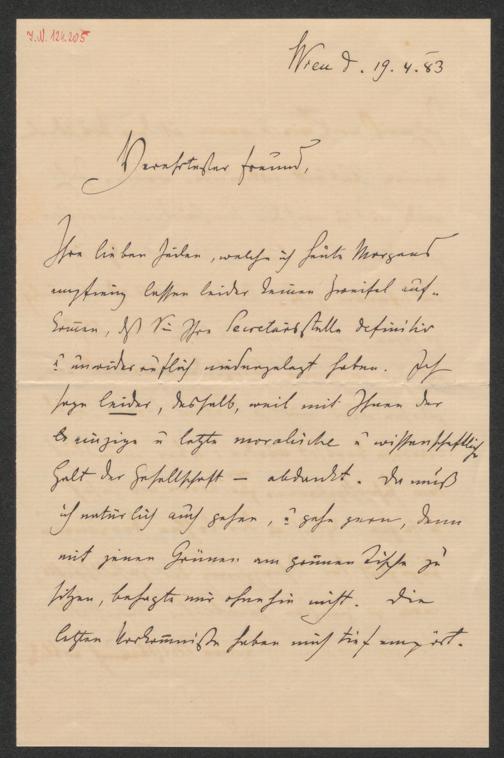 J.N. 121.205
Wien d. 19. 4. 83
Verehrtester Freund,
Ihre lieben Zeilen, welche ich heute Morgens
empfieng lassen leider keinen Zweifel auf-
kom̅en, dß Sie Ihre Secretärsstelle definitiv
u unwiderruflich niedergelegt haben. Ich
sage leider, deshalb, weil mit Ihnen der
einzige u letzte moralische u wissenschaftliche
Halt der Gesellschaft — abdankt. Da muß
ich natürlich auch gehen, u gehe gern, denn
mit jenen Grünen am grünen Tische zu
sitzen, behagte mir ohnehin nicht. Die
letzten Vorkom̅niße haben mich tief empört.